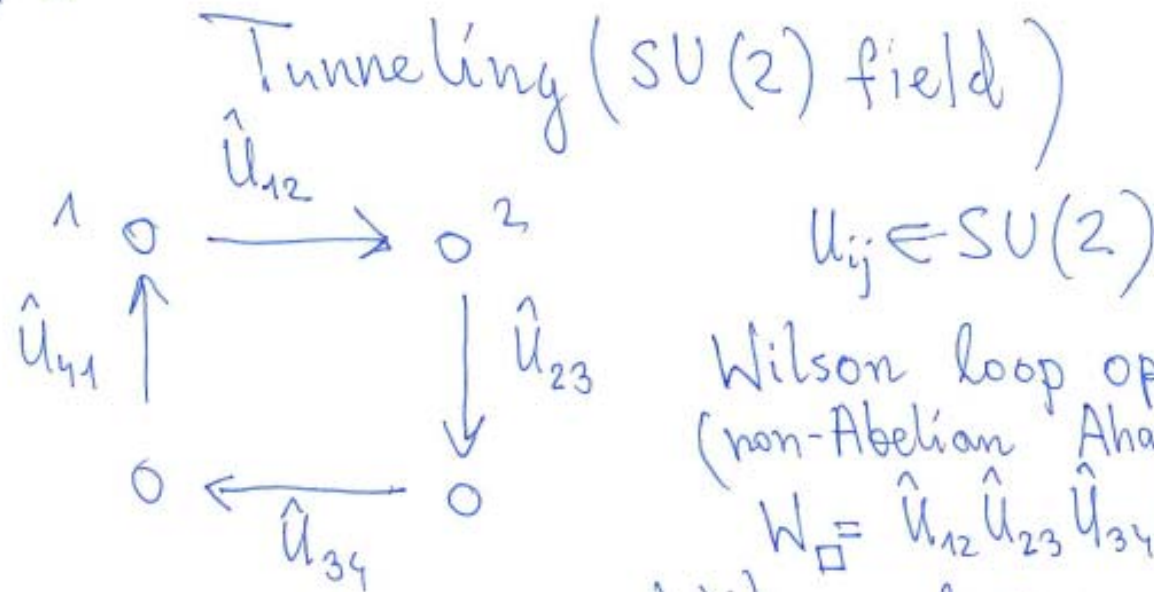 Tunneling (SU(2) field)
Û₁₂
1
2
U_ij ∈ SU(2)
Û₄₁
Û₂₃
Wilson loop op
(non-Abelian Aha
Û₃₄
W_□ = Û₁₂ Û₂₃ Û₃₄